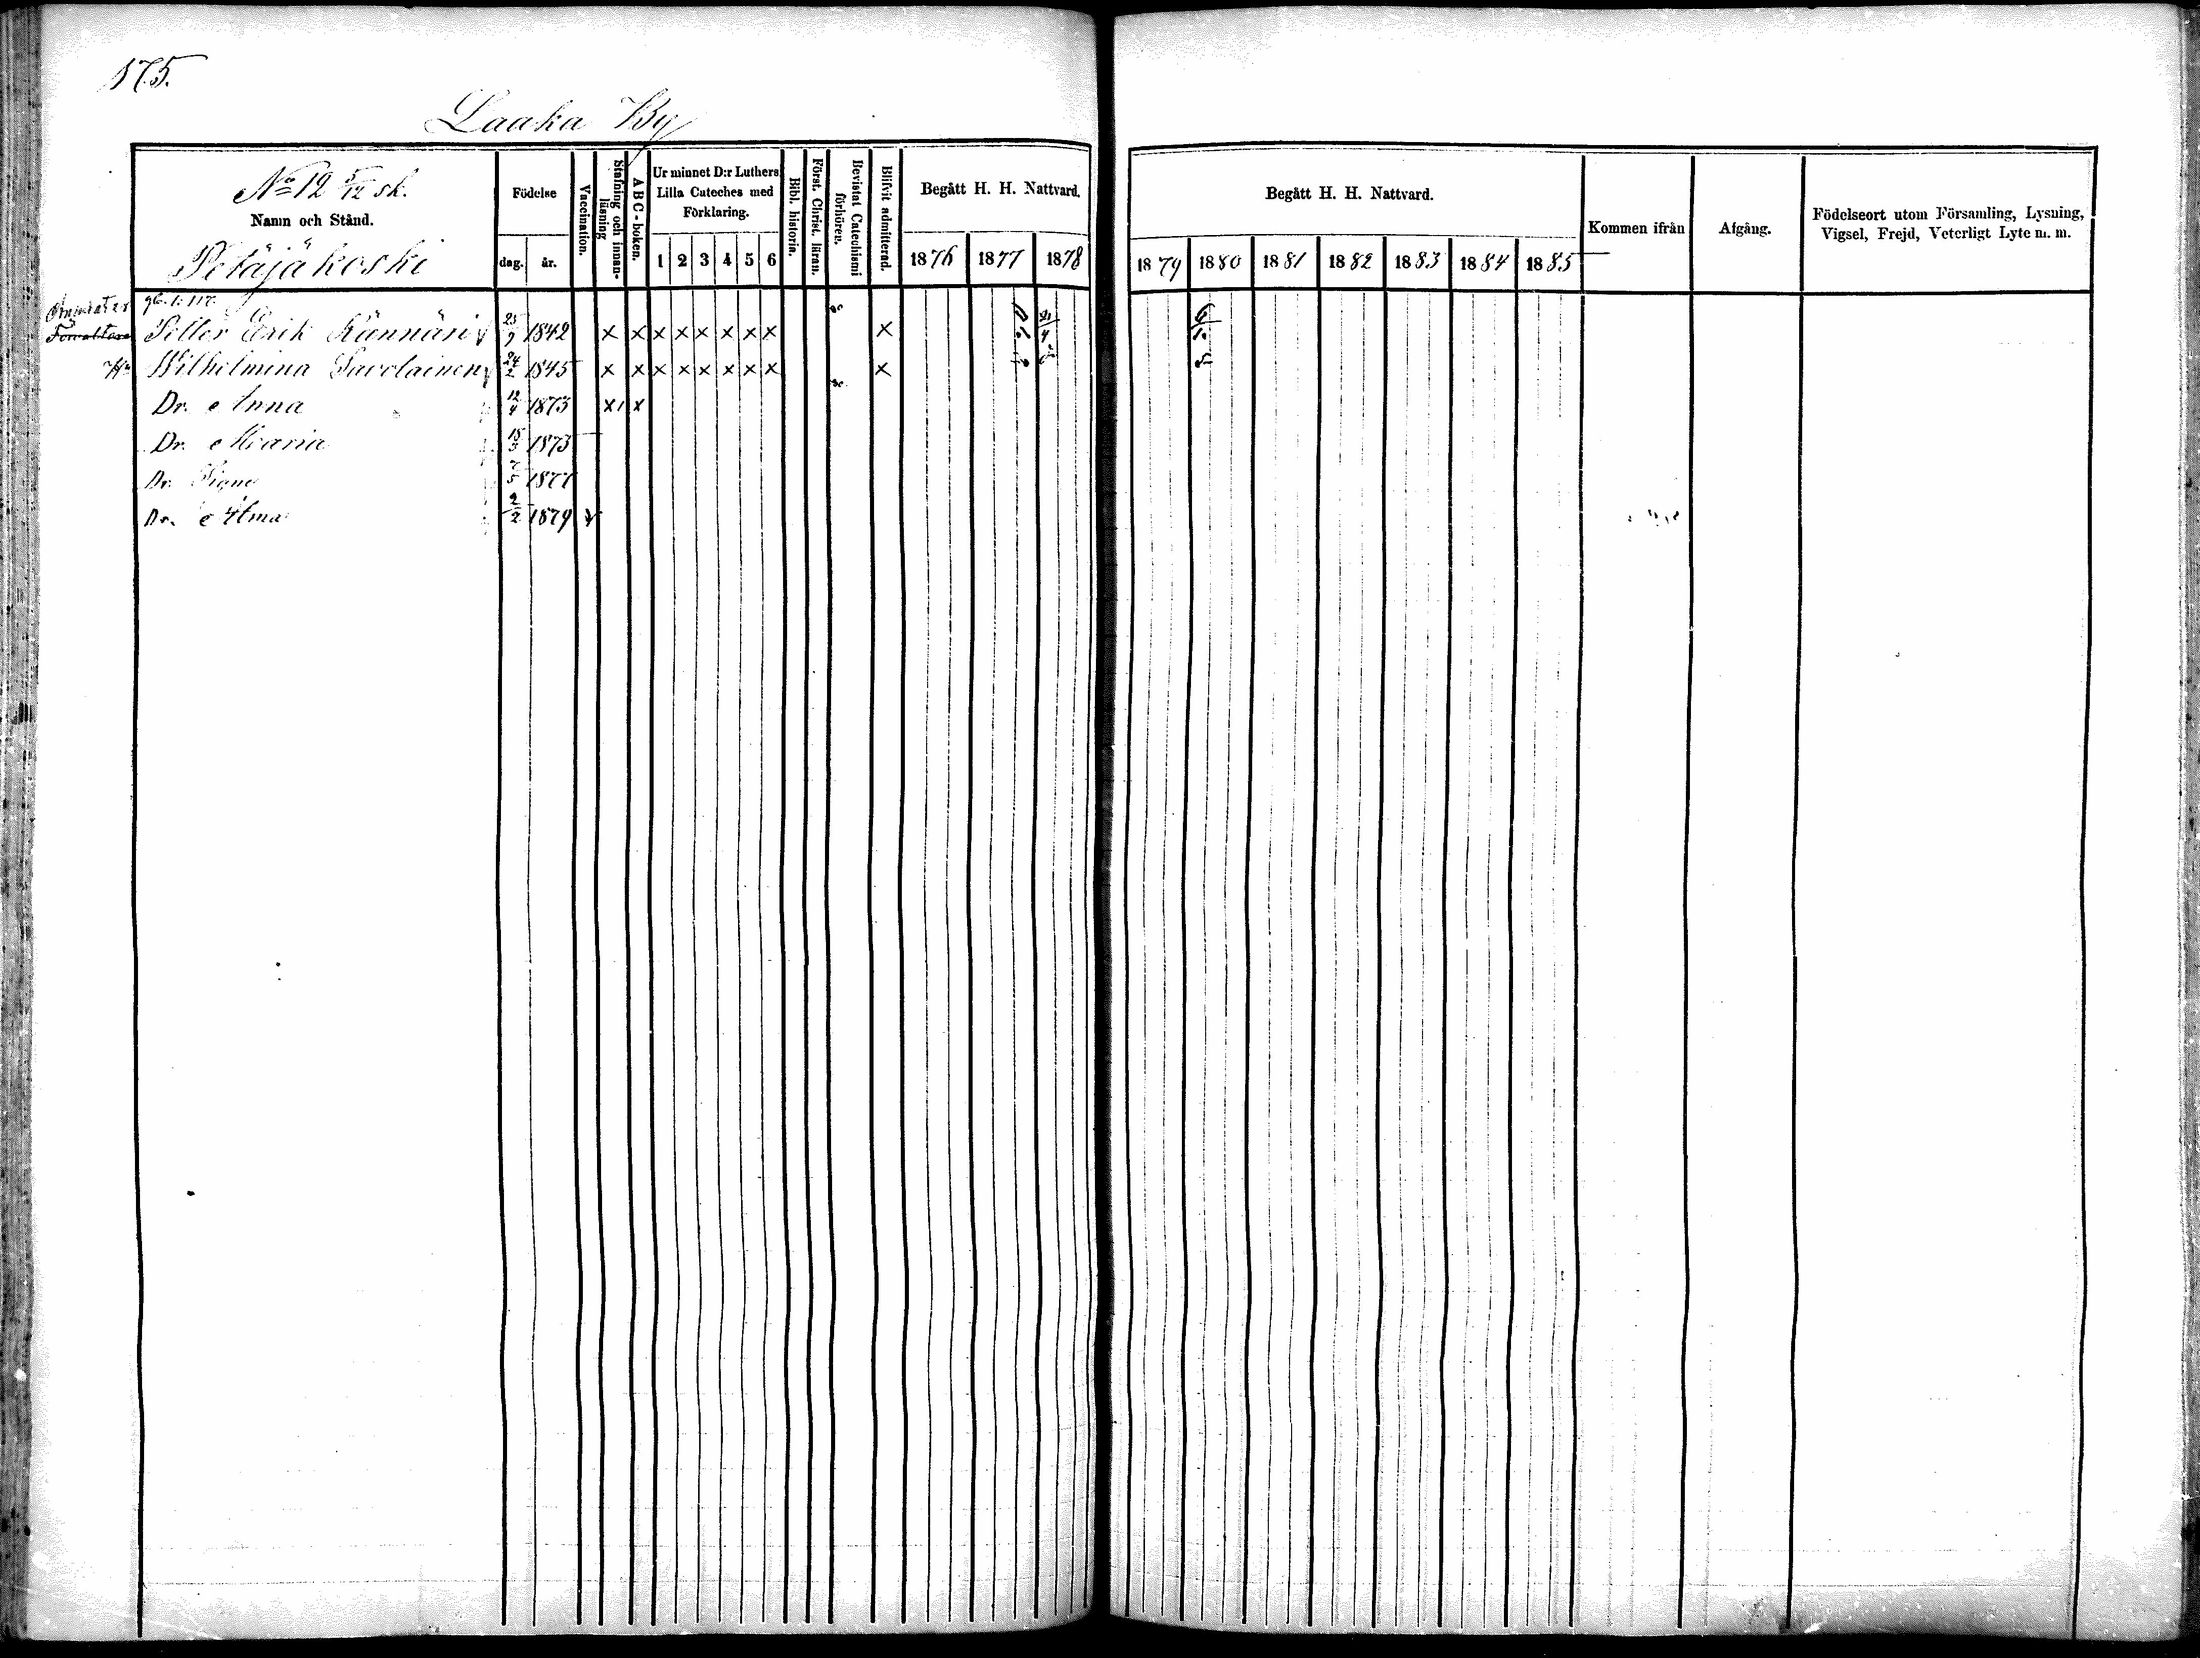 175.
Laaka By
No 12 5/12 sk.
Namn och Stånd.
Petäjäkoski
Födelse
dag. år.
Vaccination.
Stafning och innan-läsning
ABC-boken.
Ur minnet D:r Luthers Lilla Cateches med Förklaring.
1 2 3 4 5 6
Bibl. historia.
Först. Christ. läran.
Bevistat Catechismi förhören.
Blifvit admitterad.
Begått H. H. Nattvard.
1876 1877 1878
Begått H. H. Nattvard.
1879 1880 1881 1882 1883 1884 1885
Kommen ifrån
Afgång.
Födelseort utom Församling, Lysning, Vigsel, Frejd, Veterligt Lyte m. m.
Petter Erik Kännäri 1842 x x x x x x x x x
Hu Wilhelmina Savolainen 24/2 1845 x x x x x x x x x
Dr. Anna 12/4 1873 x x
Dr. Maria 1873
Dr. Signe 1877
Dr. Alma 2/2 1879 v